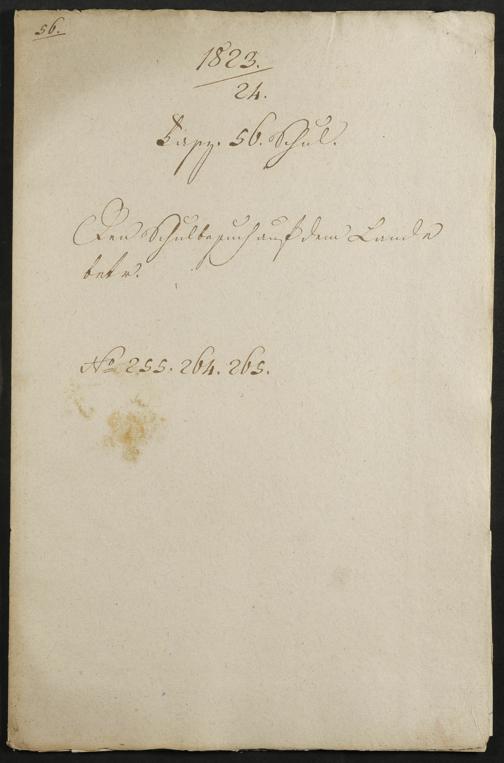 56.
1823.
24.
56. Schul.
Den Schulbesuch auf dem Lande
betr.
No 255. 264. 265.